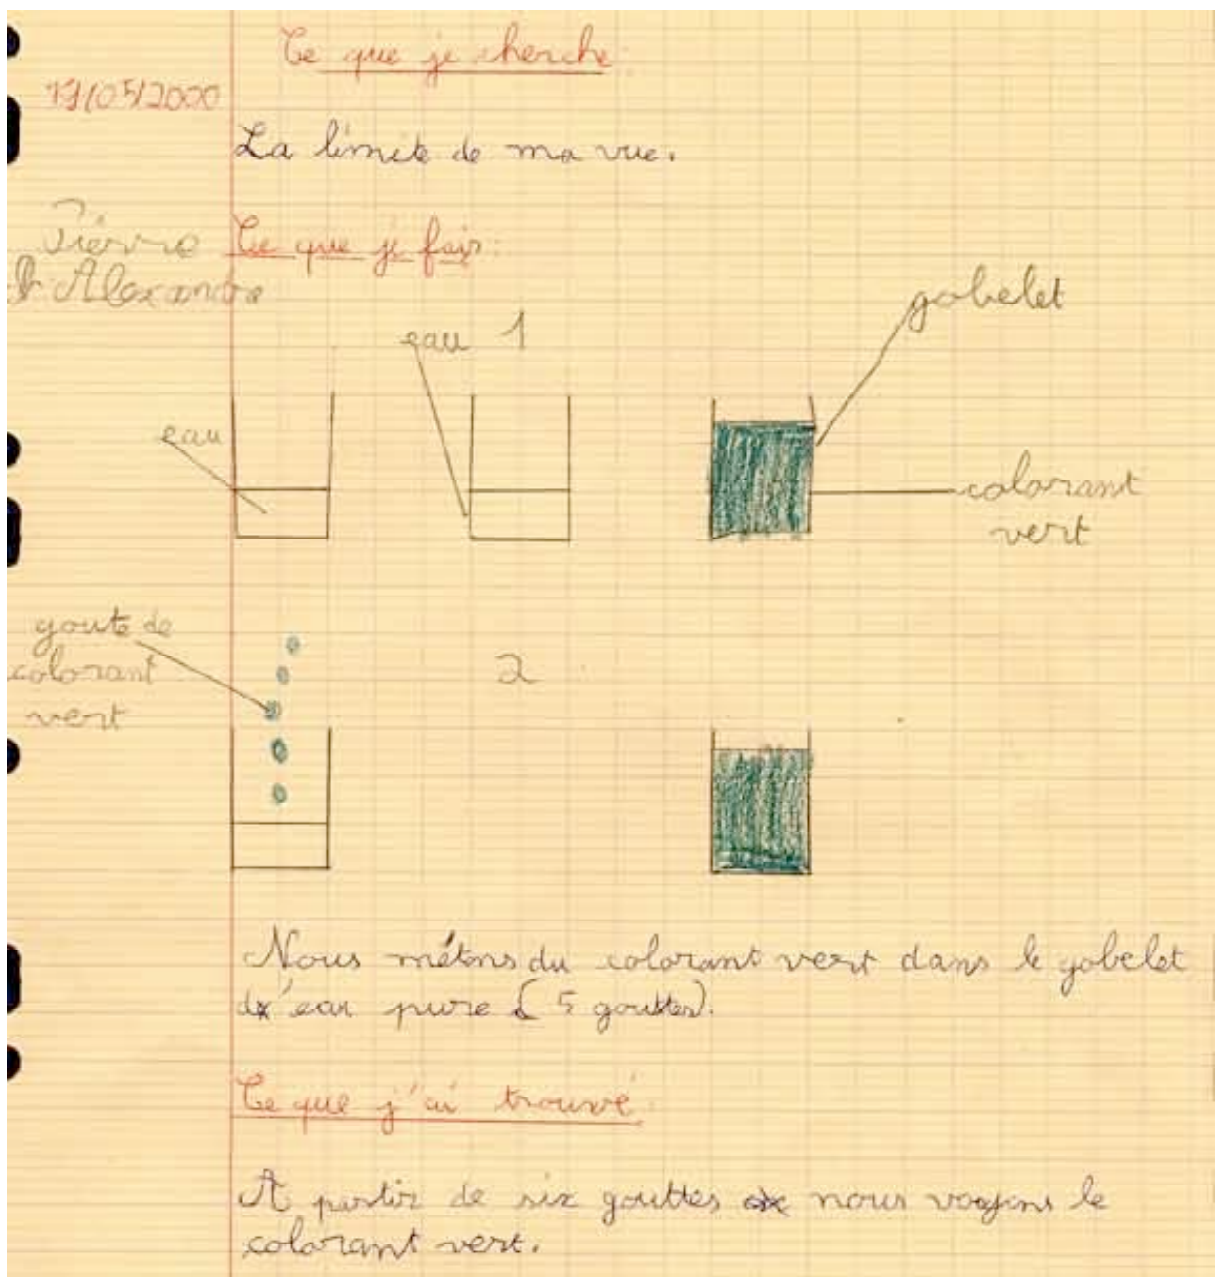 Ce que je cherche:
19/05/2000
La limite de ma vue.
Pierre
Ce que je fais:
& Alexandre
gobelet
eau 1
eau
colorant
vert
goute de
colorant
vert
2
Nous métons du colorant vert dans le gobelet
d'eau pure (5 gouttes).
Ce que j'ai trouvé:
A partir de six gouttes nous voyons le
colorant vert.